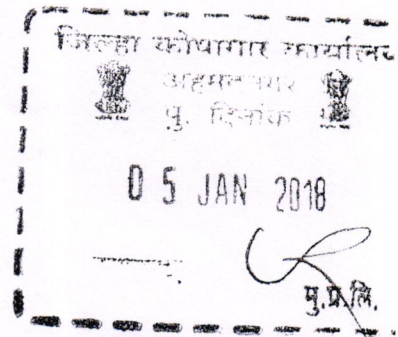 जिल्हा कोषागार कार्यालय
अहमदनगर
मु. दिनांक
05 JAN 2018
मु.प्र.लि.